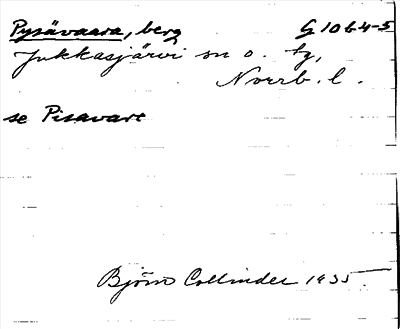 Pysävaara, berg G 1064-5
Jukkasjärvi sn o. tg,
Norrb. l.
se Pisavare
Björn Collinder 1935